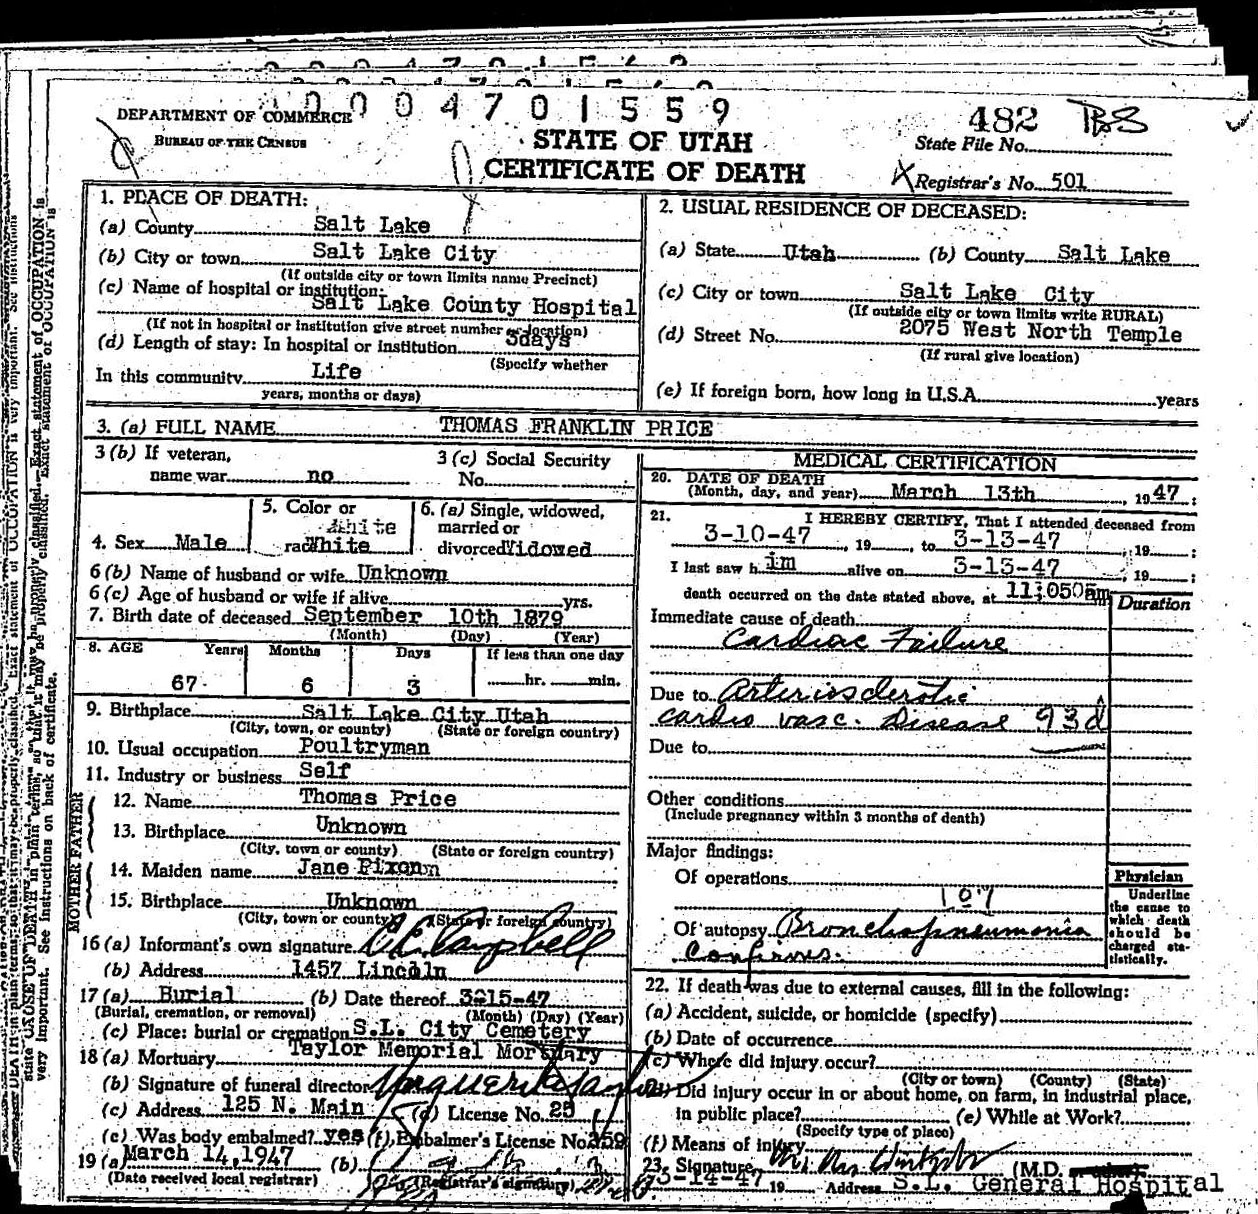 0004701559
DEPARTMENT OF COMMERCE
BUREAU OF THE CENSUS
STATE OF UTAH
CERTIFICATE OF DEATH
482
State File No.
Registrar's No. 501
1. PLACE OF DEATH:
(a) County Salt Lake
(b) City or town Salt Lake City
(If outside city or town limits name Precinct)
(c) Name of hospital or institution:
Salt Lake County Hospital
(If not in hospital or institution give street number or location)
(d) Length of stay: In hospital or institution 3days
(Specify whether
In this community Life
years, months or days)
2. USUAL RESIDENCE OF DECEASED:
(a) State Utah (b) County Salt Lake
(c) City or town Salt Lake City
(If outside city or town limits write RURAL)
(d) Street No. 2075 West North Temple
(If rural give location)
(e) If foreign born, how long in U.S.A. years
3. (a) FULL NAME THOMAS FRANKLIN PRICE
3 (b) If veteran,
name war no
3 (c) Social Security
No.
4. Sex Male
5. Color or
White
race White
6. (a) Single, widowed,
married or
divorced Widowed
6 (b) Name of husband or wife Unknown
6 (c) Age of husband or wife if alive yrs.
7. Birth date of deceased September 10th 1879
(Month) (Day) (Year)
8. AGE Years Months Days If less than one day
67 6 3 hr. min.
9. Birthplace Salt Lake City Utah
(City, town, or county) (State or foreign country)
10. Usual occupation Poultryman
11. Industry or business Self
FATHER
12. Name Thomas Price
13. Birthplace Unknown
(City, town or county) (State or foreign country)
MOTHER
14. Maiden name Jane
15. Birthplace Unknown
(City, town or county) (State or foreign country)
16 (a) Informant's own signature Campbell
(b) Address 1457 Lincoln
17 (a) Burial (b) Date thereof 3-15-47
(Burial, cremation, or removal) (Month) (Day) (Year)
(c) Place: burial or cremation S.L. City Cemetery
18 (a) Mortuary Taylor Memorial Mortuary
(b) Signature of funeral director
(c) Address 125 N. Main (d) License No. 25
(e) Was body embalmed? yes (f) Embalmer's License No. 359
19 (a) March 14,1947 (b)
(Date received local registrar) (Registrar's signature)
MEDICAL CERTIFICATION
20. DATE OF DEATH
(Month, day, and year) March 13th , 1947 :
21. I HEREBY CERTIFY, That I attended deceased from
3-10-47 , 19 , to 3-13-47 , 19 ;
I last saw him alive on 3-13-47 , 19 ;
death occurred on the date stated above, at 11;050am
Duration
Immediate cause of death
Cardiac Failure
Due to Arteriosclerotic
cardio vasc. Disease 93d
Due to
Other conditions
(Include pregnancy within 3 months of death)
Major findings:
Of operations
107
Of autopsy Bronchopneumonia
Confirms.
Physician
Underline
the cause to
which death
should be
charged sta-
tistically.
22. If death was due to external causes, fill in the following:
(a) Accident, suicide, or homicide (specify)
(b) Date of occurrence
(c) Where did injury occur?
(City or town) (County) (State)
(d) Did injury occur in or about home, on farm, in industrial place,
in public place? (e) While at Work?
(Specify type of place)
(f) Means of injury
23. Signature (M.D.
3-14-47 19 Address S.L. General Hospital